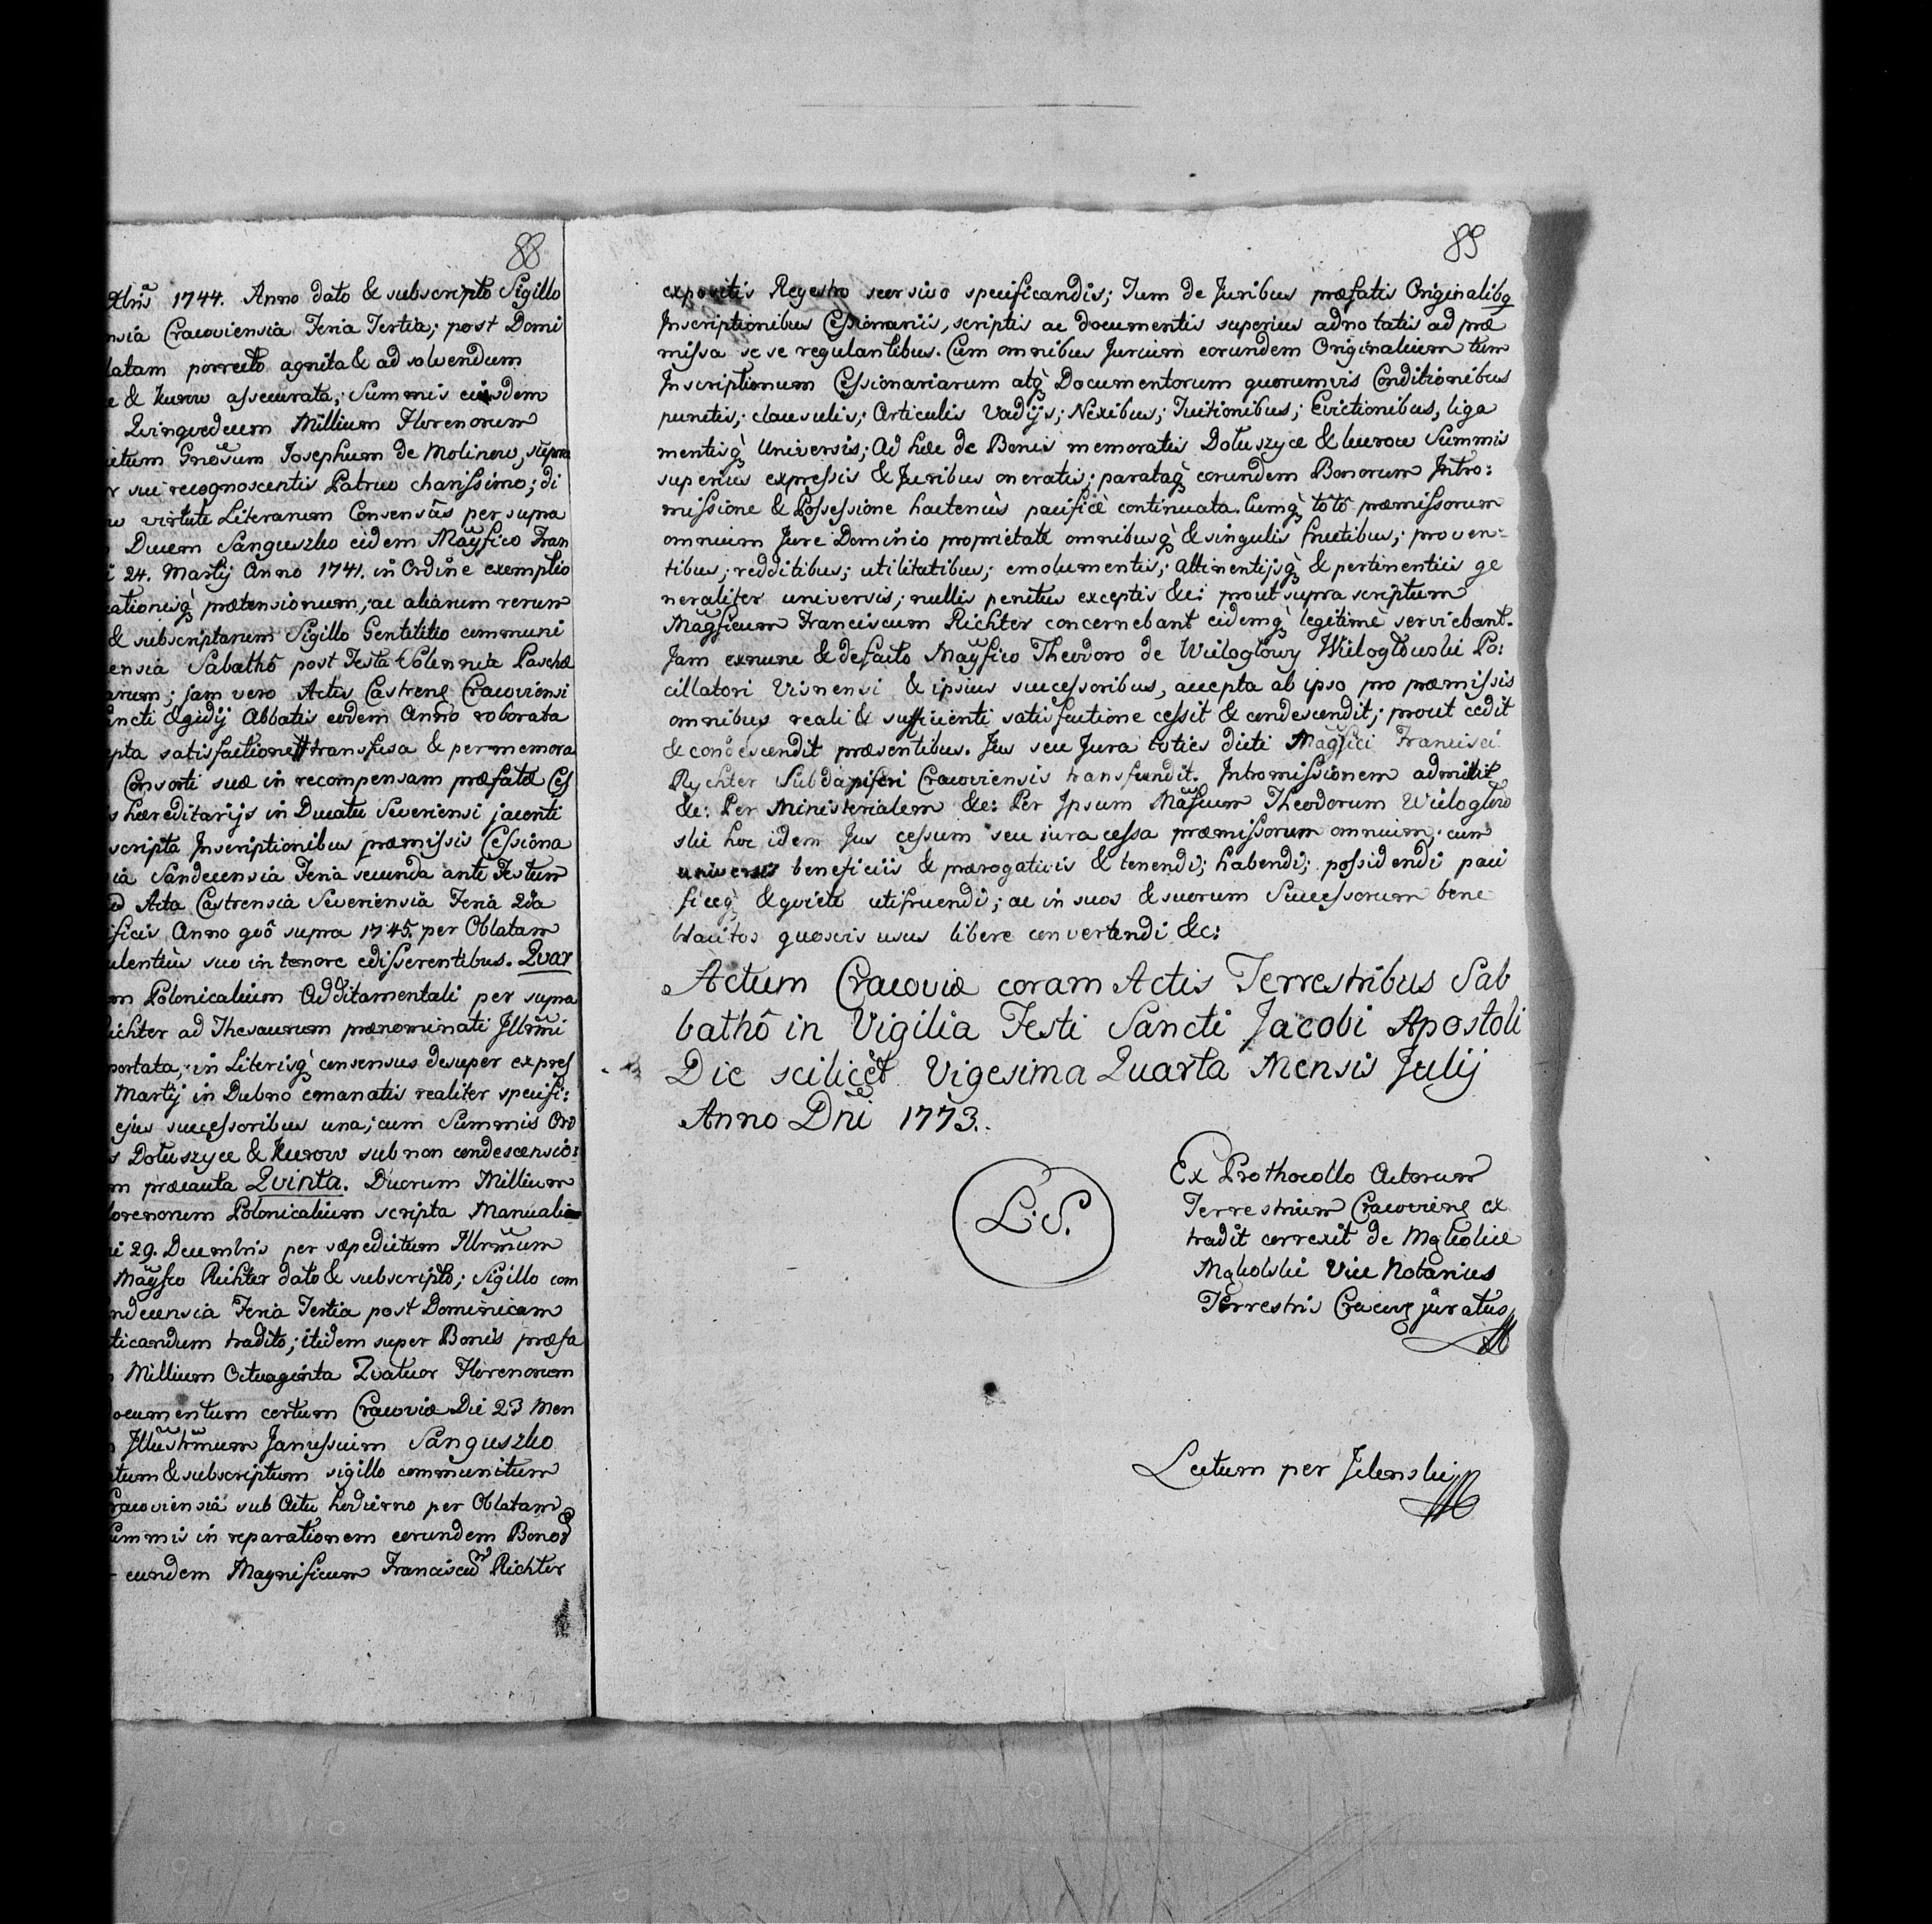 88
Xbris 1744. Anno dato & subscripto Sigillo
Cracoviensia Feria Tertia; post Domi
latam porrecto agnita & ad solvendum
& Kurow assecurata; Summis eiusdem
Qvinqvedecem Millium Florenorum
Gnosum Josephum de Molinow, supra
sui recognoscentis Patruo charissimo; di
virtute Literarum Consensûs per supra
Ducem Sanguszko eidem Magfico Fran
24. Martij Anno 1741. in Ordine exemptio
ationisq̀ prætensionum; ac aliarum rerum
& subscriptarum Sigillo Gentilitio communi
ensia Sabathô post Festa Solennia Paschæ
arum; jam vero Actis Castrens Cracoviensi
ancti Ægidij Abbatis eodem Anno roborata
epta satisfactione transfusa & per memora
Consorti suæ in recompensam præfatæ Ces
s hæreditarijs in Ducatu Severiensi jacenti
scripta Inscriptionibus præmissis Cessiona
ia Sandecensia Feria secunda ante Festum
Acta Castrensia Severiensia Feria 2da
ificis Anno qvô supra 1745. per Oblatam
ulentius suo in tenore edisserentibus. Qvar
m Polonicalium Additamentali per supra
ichter ad Thesaurum prænominati Jllrmi
portata; in Literisq̀ consensus desuper expres
Martij in Dubno emanatis realiter specifi:
ejus successoribus una; cum Summis Ori
s Dołuszyce & Kurow sub non condescensio:
m præcauta Qvinta. Duorum Millium
lorenorum Polonicalium scripta Manuali
i 29. Decembris per sæpedictum Jllrmum
Magfco Richter dato & subscripto; Sigillo com
ndecensia Feria Tertia post Dominicam
ticandum tradito; itidem super Bonis præfa
Millium Octuaginta Qvatuor Florenorum
ocumentum certum Cracoviæ Die 23 Men
Jllustrmum Janussium Sanguszko
atum & subscriptum sigillo communitum
racoviensia sub Actu hodierno per Oblatam
ummis in reparationem eorundem Bonor
eundem Magnificum Franciscum Richter
89
expositis Regestro seorsivo specificandis; Tum de Juribus præfatis Originalibq
Inscriptionibus Cessionariis, scriptis ac documentis superius adnotatis ad præ
missa se se regulantibus. Cum omnibus Jurium eorundem Originalium tum
Inscriptionum Cessionariarum atq̀ Documentorum quorumvis Conditionibus
punctis; clausulis; Articulis Vadijs; Nexibus; Tuitionibus; Evictionibus, liga
mentisq̀ Universis; Ad hæc de Bonis memoratis Dołuszyce & Kurow Summis
superius expressis & Juribus oneratis; parataq̀ eorundem Bonorum Intro:
missione & Possessione hactenùs pacificè continuata. Cumq̀ totô præmissorum
omnium Jure Dominio proprietate omnibusq̀ & singulis fructibus; proven=
tibus; redditibus; utilitatibus; emolumentis; Attinentijsq̀ & pertinentiis ge
neraliter universis; nullis penitus exceptis &c: prout supra scriptum
Magficum Franciscum Richter concernebant eidemq̀ legitimè serviebant.
Jam exnunc & defacto Magfico Theodoro de Wielogłowy Wielogłowski Po:
cillatori Visnensi & ipsius successoribus, accepta ab ipso pro præmissis
omnibus reali & sufficienti satisfactione cessit & condescendit; prout cedit
& condescendit præsentibus. Jus seu Jura toties dicti Magfici Francisci
Rychter Subdapiferi Cracoviensis transfundit. Intromissionem admittit
&c: Per Ministerialem &c: Per Ipsum Magficum Theodorum Wielogłow
ski hoc idem Jus cessum seu iura cessa præmissorum omnium; cum
universis beneficiis & prærogativis & tenendi; habendi; possidendi paci
ficeq̀ & qviete utifruendi; ac in suos & suorum Successorum bene
blacitos quosvis usus libere convertendi &c:
Actum Cracoviæ coram Actis Terrestribus Sab
bathô in Vigilia Festi Sancti Jacobi Apostoli
Die scilicèt Vigesima Quarta Mensis Julij
Anno Dni 1773.
L.S.
Ex Prothocollo Actorum
Terrestrium Cracoviens ex
tradit correxit de
Vice Notarius
Terrestris Cracovs juratus
Lectum per Jelenski